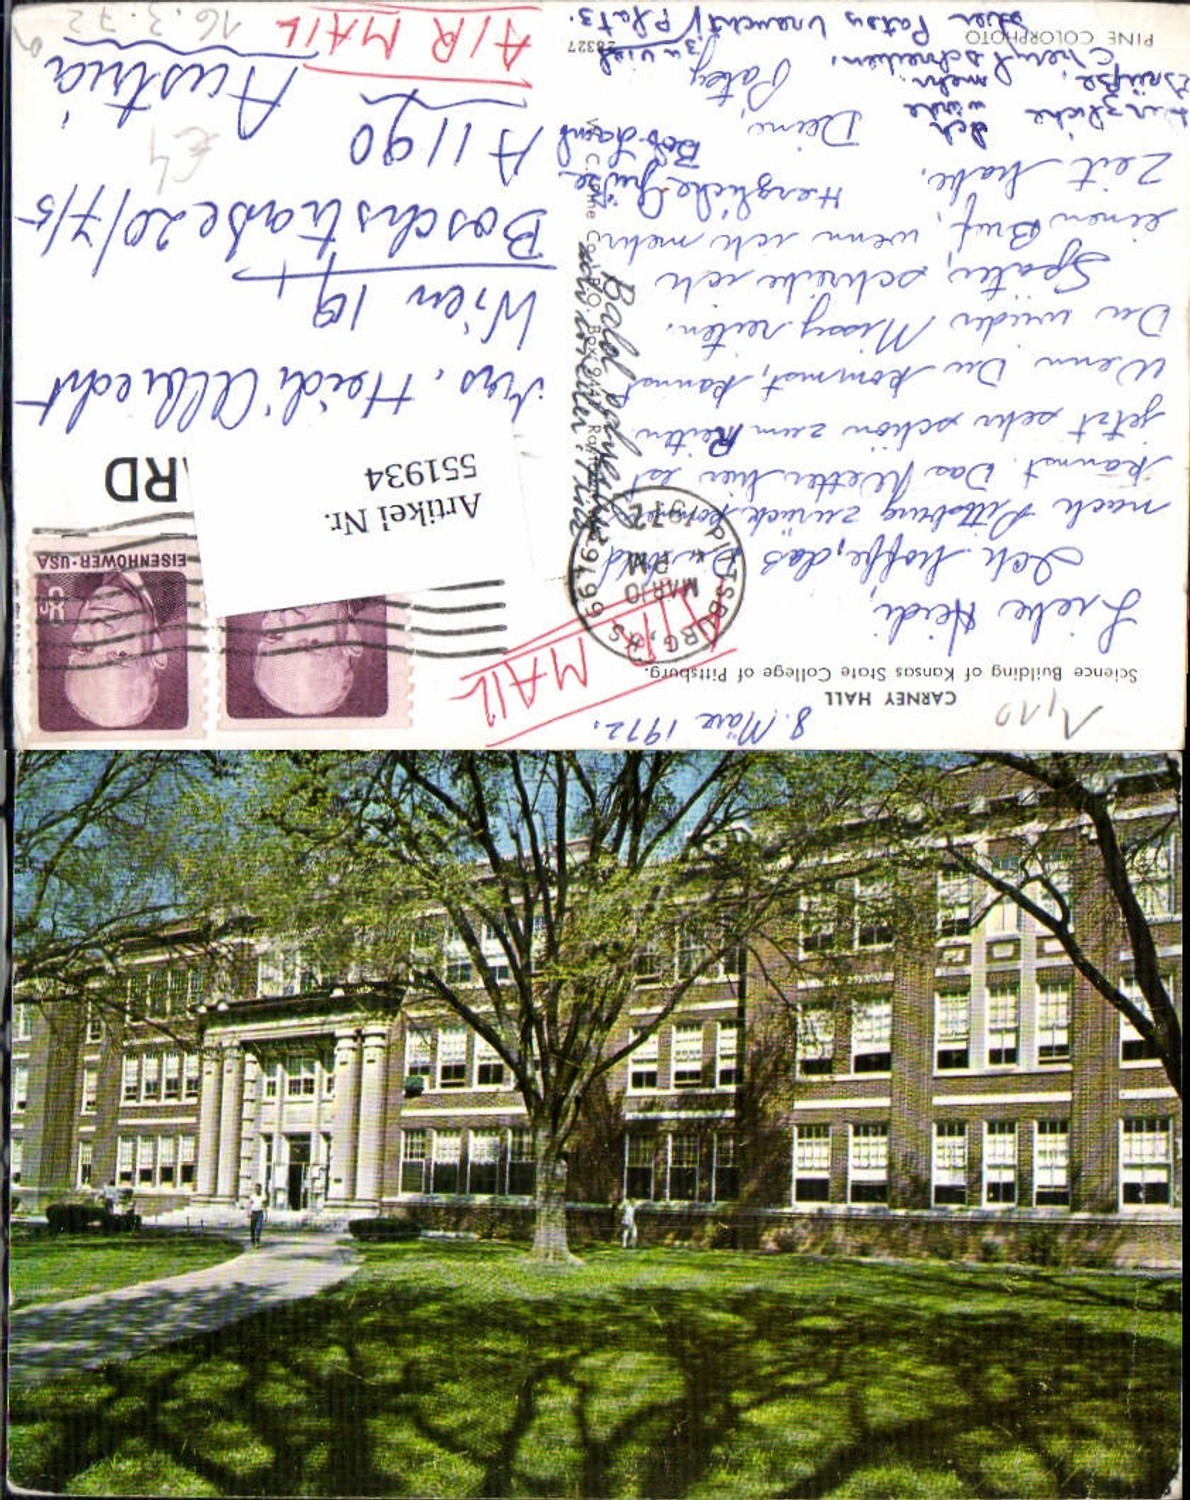 8. März 1972.
CARNEY HALL
Science Building of Kansas State College of Pittsburg.
Liebe Heidi,
Ich hoffe, das Du bald
nach Pittsburg zurück kommen
kannst. Das Wetter hier ist
jetzt sehr schön zum Reiten.
Wenn Du kommst, kannst
Du wieder Missy reiten.
Später, schreibe ich
einen Brief, wenn ich mehr
Zeit habe.
Herzliche Grüße
Bob
Deine,
Patsy
Herzliche
Grüße,
Cheryl
Ich
würde
mehr
schreiben,
aber Patsy braucht
zu viel
Platz.
PINE COLORPHOTO
28327
Bald
AIR MAIL
PITTSBURG, KS
MAR 10
PM
1972
EISENHOWER·USA
8c
Artikel Nr.
551934
RD
Mrs. Heidi Albrecht
Wien 19
Boschstraße 20/7/5
A 1190
Austria
AIR MAIL
16.3.72
£4